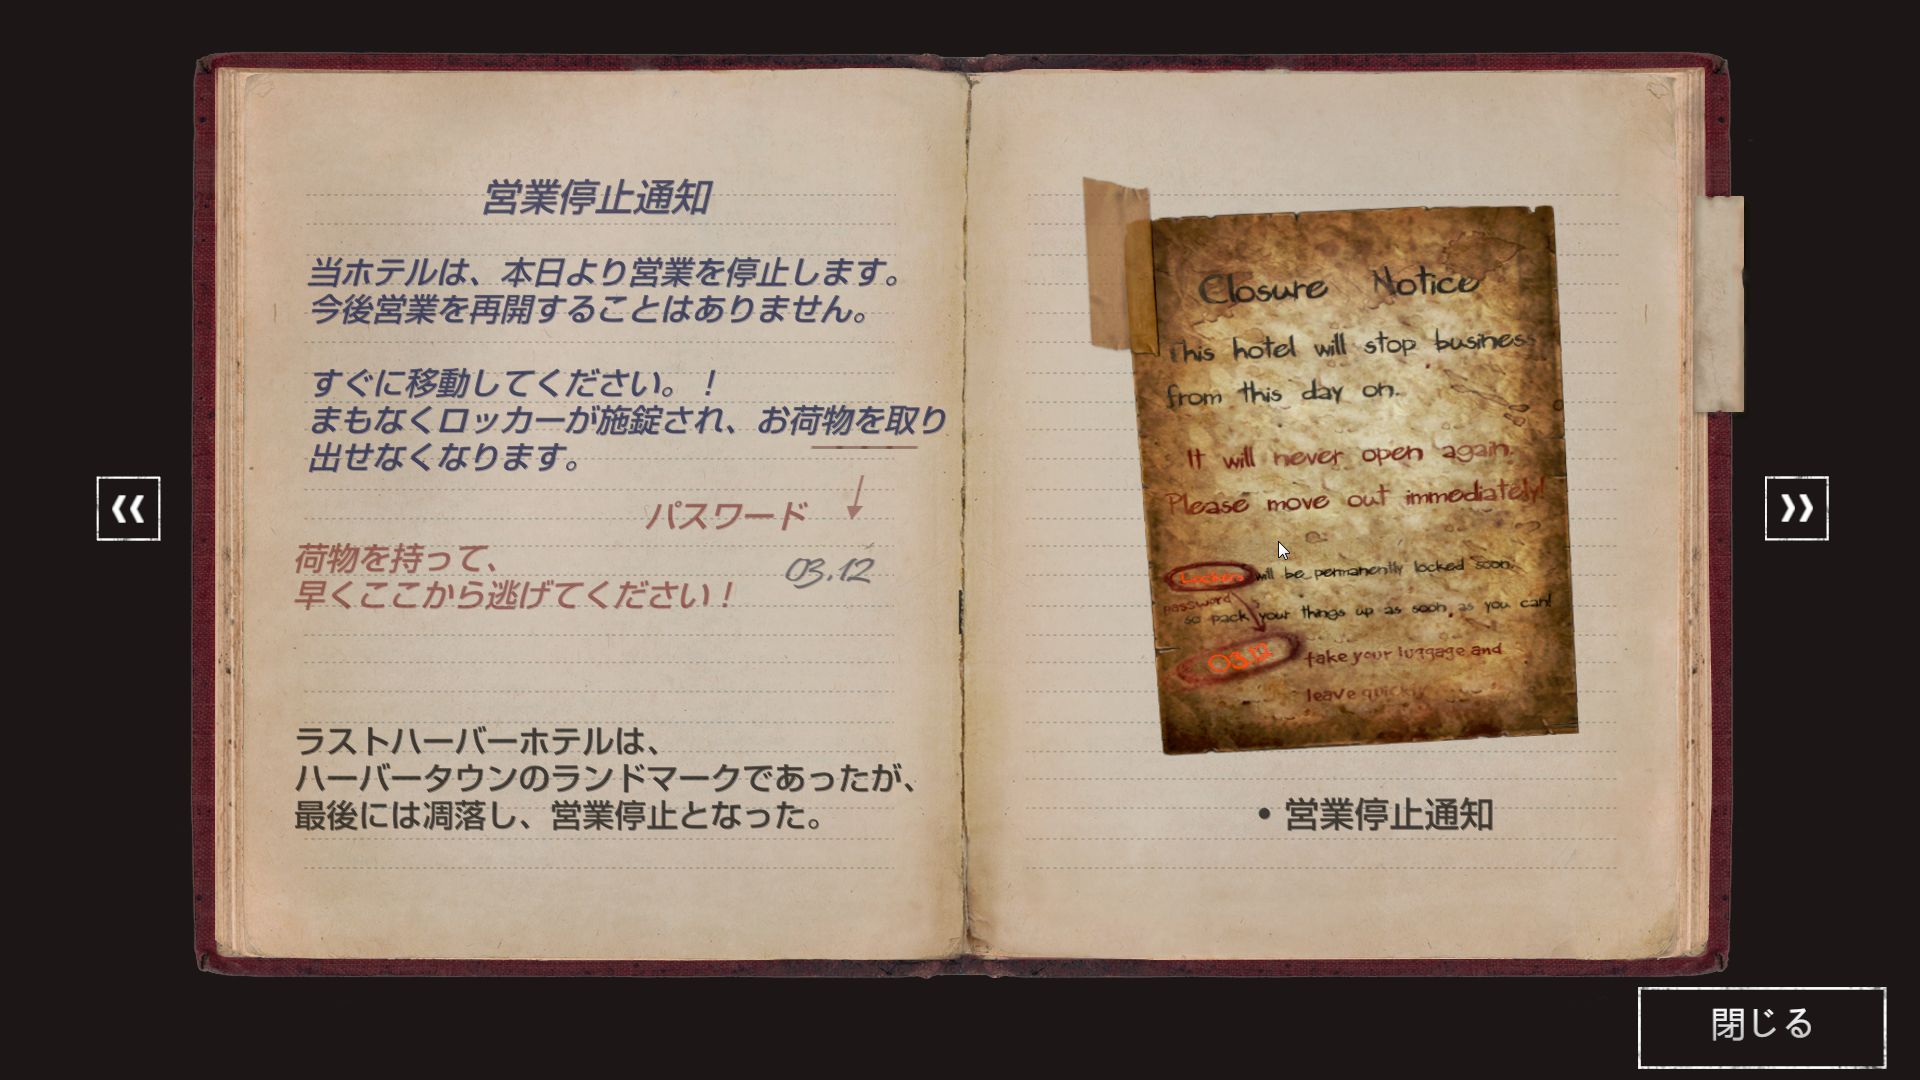 営業停止通知
当ホテルは、本日より営業を停止します。
今後営業を再開することはありません。
すぐに移動してください。！
まもなくロッカーが施錠され、お荷物を取り
出せなくなります。
パスワード
03.12
荷物を持って、
早くここから逃げてください！
ラストハーバーホテルは、
ハーバータウンのランドマークであったが、
最後には凋落し、営業停止となった。
Closure Notice
This hotel will stop business
from this day on.
It will never open again.
Please move out immediately!
Lockers will be permanently locked soon,
password
so pack your things up as soon as you can!
03.12
take your luggage and
leave quickly
• 営業停止通知
閉じる